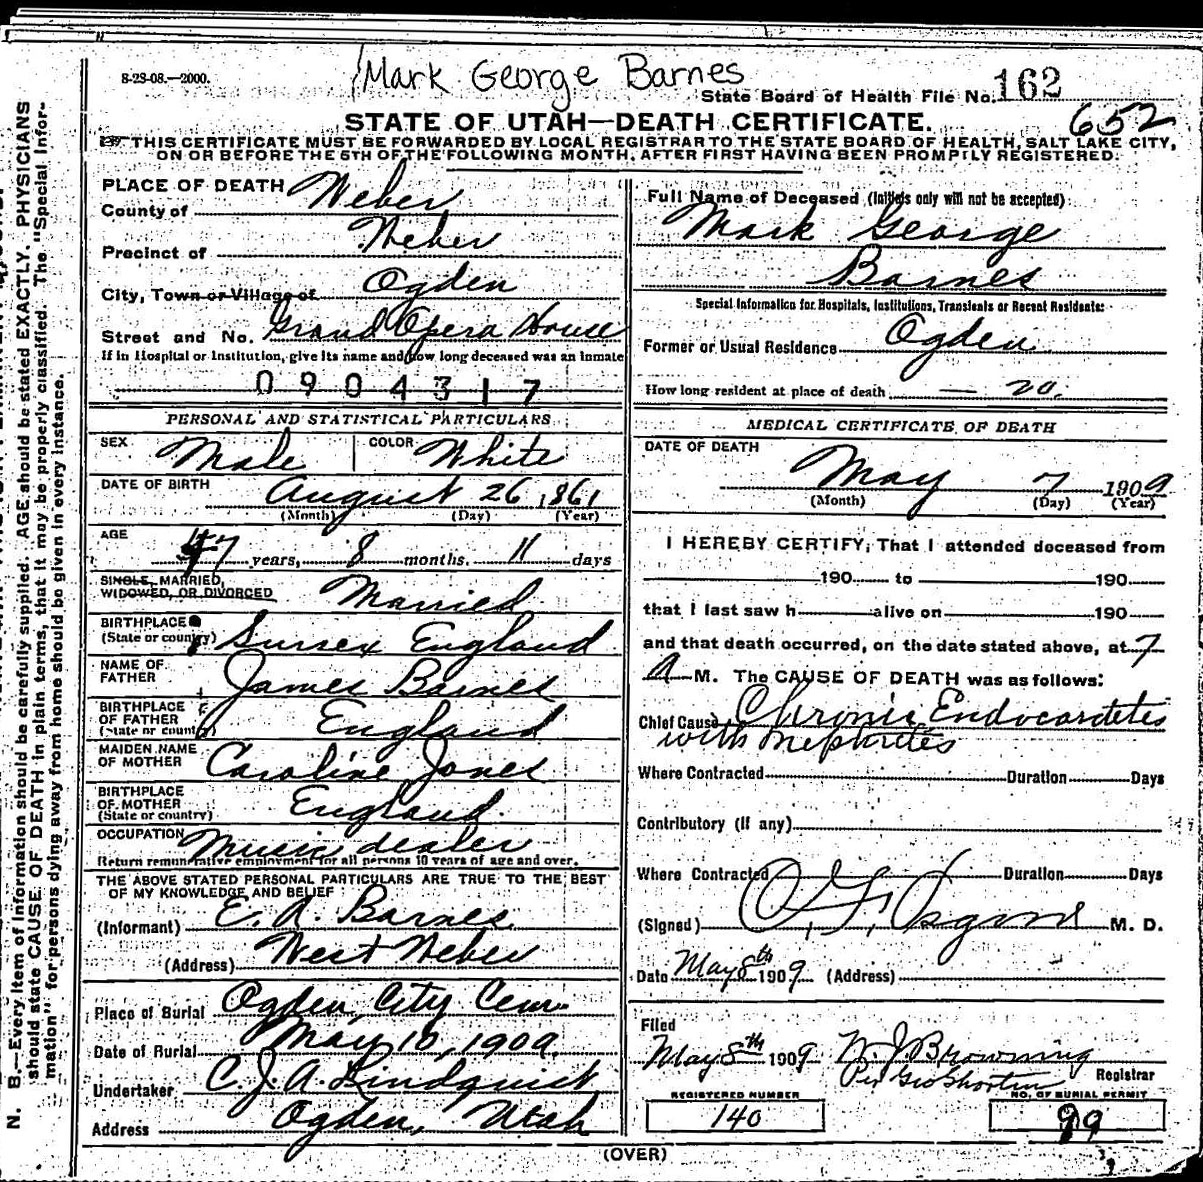 Mark George Barnes
8-28-08.—2000.
State Board of Health File No. 162
652
STATE OF UTAH—DEATH CERTIFICATE.
THIS CERTIFICATE MUST BE FORWARDED BY LOCAL REGISTRAR TO THE STATE BOARD OF HEALTH, SALT LAKE CITY,
ON OR BEFORE THE 5TH OF THE FOLLOWING MONTH, AFTER FIRST HAVING BEEN PROMPTLY REGISTERED.
PLACE OF DEATH
County of Weber
Precinct of Weber
City, Town or Village of Ogden
Street and No. Grand Opera House
If in Hospital or Institution, give its name and how long deceased was an inmate
0904317
PERSONAL AND STATISTICAL PARTICULARS
SEX Male COLOR White
DATE OF BIRTH August 26, 1861
(Month) (Day) (Year)
AGE 47 years, 8 months. 11 days
SINGLE, MARRIED,
WIDOWED, OR DIVORCED Married
BIRTHPLACE
(State or country) Sussex England
NAME OF
FATHER James Barnes
BIRTHPLACE
OF FATHER
(State or country) England
MAIDEN NAME
OF MOTHER Caroline Jones
BIRTHPLACE
OF MOTHER
(State or country) England.
OCCUPATION Music dealer
Return remunerative employment for all persons 10 years of age and over.
THE ABOVE STATED PERSONAL PARTICULARS ARE TRUE TO THE BEST
OF MY KNOWLEDGE AND BELIEF
(Informant) E. A. Barnes.
(Address) West Weber
Place of Burial Ogden City Cem.
Date of Burial May 10, 1909.
Undertaker C. J. A. Lindquist
Address Ogden, Utah
Full Name of Deceased (Initials only will not be accepted)
Mark George
Barnes
Special Information for Hospitals, Institutions, Transients or Recent Residents:
Former or Usual Residence Ogden.
How long resident at place of death — 20.
MEDICAL CERTIFICATE OF DEATH
DATE OF DEATH
May 7 1909
(Month) (Day) (Year)
I HEREBY CERTIFY, That I attended deceased from
190 to 190
that I last saw h alive on 190
and that death occurred, on the date stated above, at 7
A M. The CAUSE OF DEATH was as follows:
Chief Cause Chronic Endocardetes
with Nephretes
Where Contracted Duration Days
Contributory (if any)
Where Contracted Duration Days
(Signed) Osgood M. D.
Date May 8th 1909 (Address)
Filed
May 8th 1909 W. J. Browning
Per Geo Shorten Registrar
REGISTERED NUMBER
140
NO. OF BURIAL PERMIT
99
(OVER)
N. B.—Every item of information should be carefully supplied. AGE should be stated EXACTLY. PHYSICIANS
should state CAUSE OF DEATH in plain terms, that it may be properly classified. The "Special Infor-
mation" for persons dying away from home should be given in every instance.